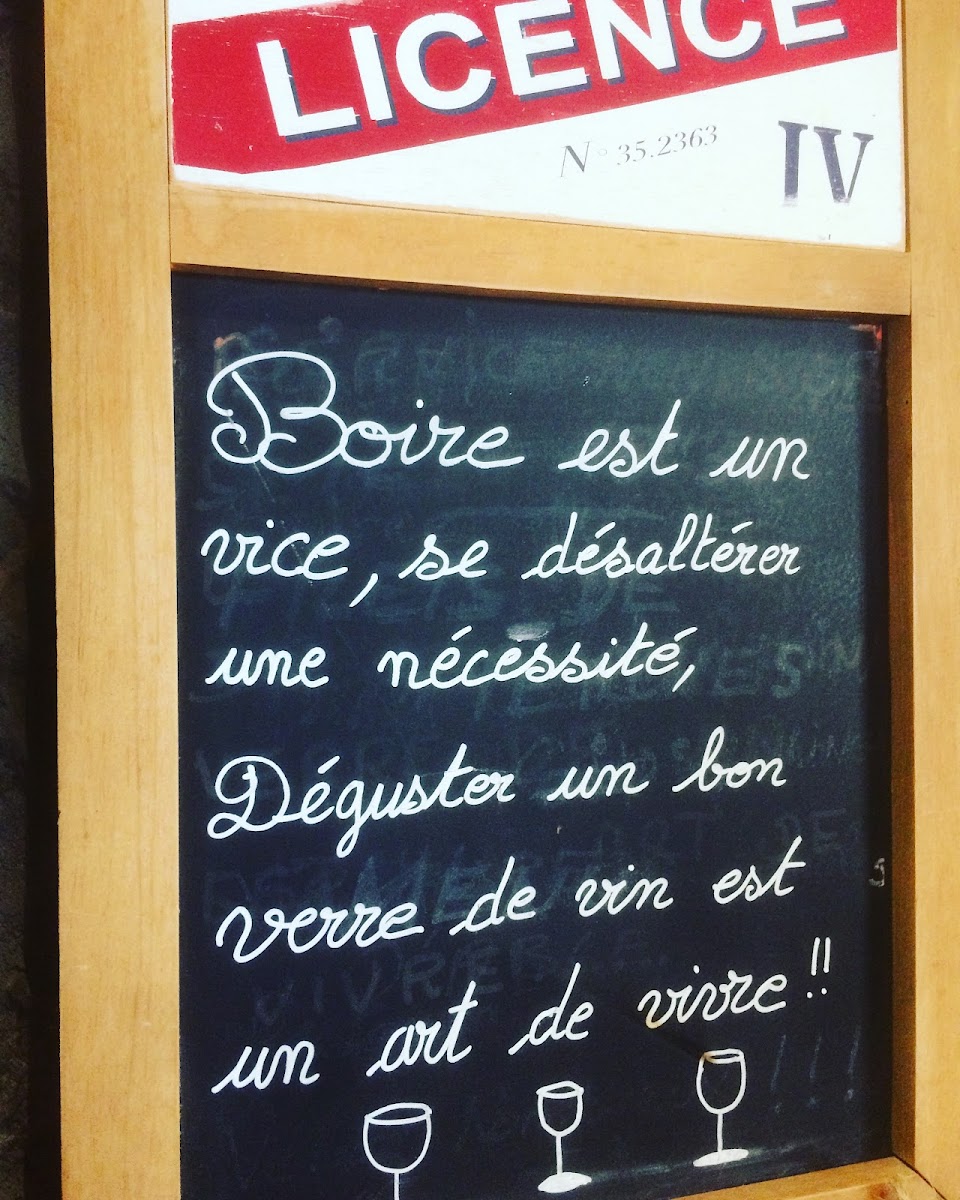 LICENCE
N° 35.2363
IV
Boire est un
vice, se désaltérer
une nécessité,
Déguster un bon
verre de vin est
un art de vivre !!